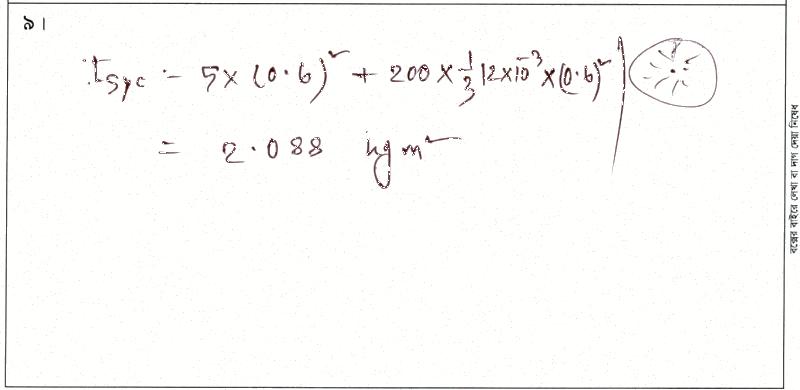 ৯।
I_sys = 5 × (0.6)² + 200 × 1/3 12×10⁻³ × (0.6)²
= 2.088 kg m²
বক্সের বাইরে লেখা বা দাগ দেয়া নিষেধ